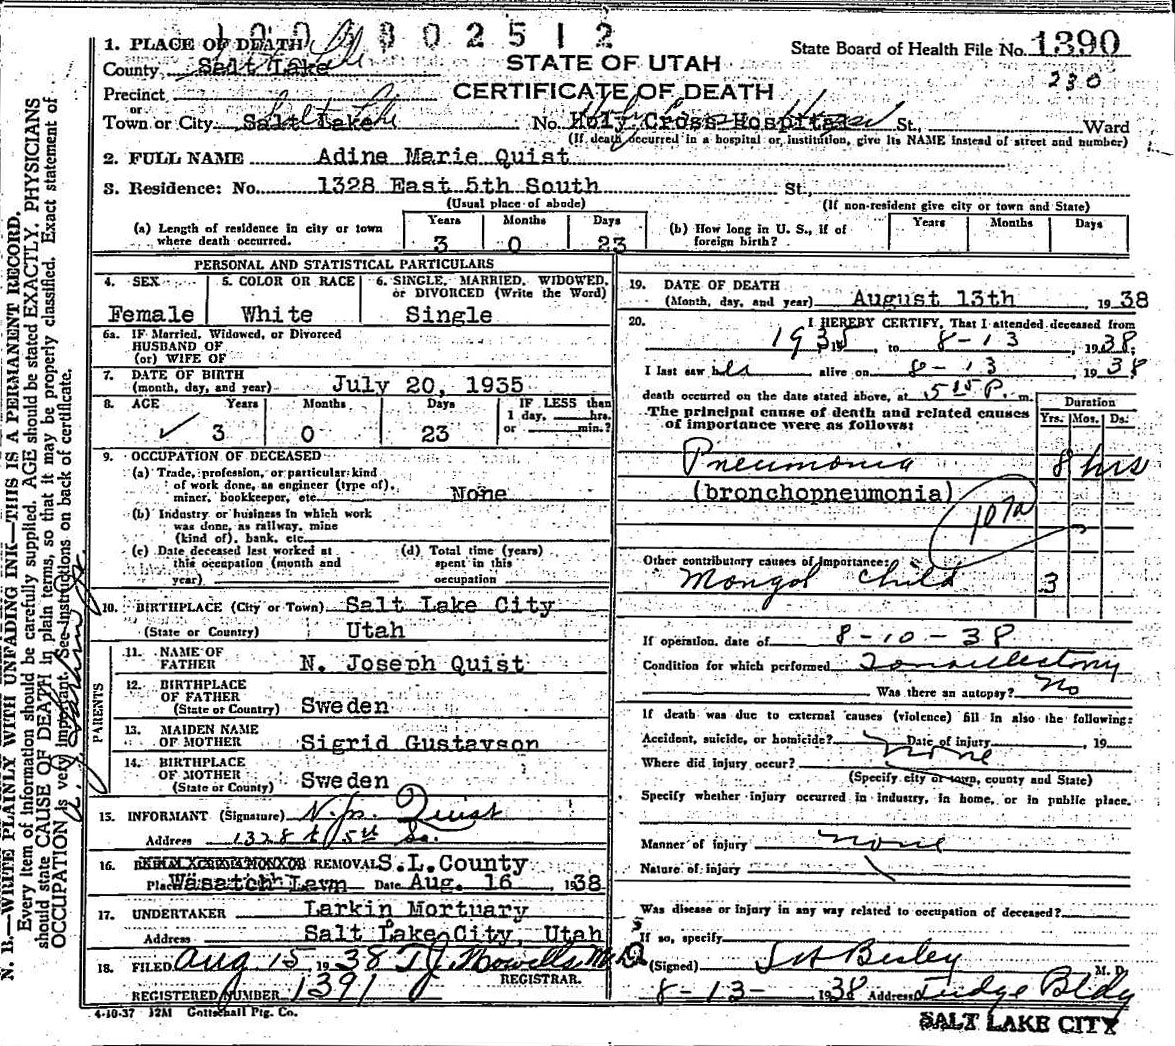 1003802512
State Board of Health File No. 1390
230
STATE OF UTAH
CERTIFICATE OF DEATH
1. PLACE OF DEATH
County Salt Lake
Precinct
or
Town or City Salt Lake No. Holy Cross Hospital St., Ward
(If death occurred in a hospital or institution, give its NAME instead of street and number)
2. FULL NAME Adine Marie Quist
3. Residence: No. 1328 East 5th South St.
(Usual place of abode) (If non-resident give city or town and State)
(a) Length of residence in city or town where death occurred. Years 3 Months 0 Days 23
(b) How long in U. S., if of foreign birth? Years Months Days
PERSONAL AND STATISTICAL PARTICULARS
4. SEX Female
5. COLOR OR RACE White
6. SINGLE, MARRIED, WIDOWED, or DIVORCED (Write the Word) Single
6a. IF Married, Widowed, or Divorced
HUSBAND OF
(or) WIFE OF
7. DATE OF BIRTH
(month, day, and year) July 20, 1935
8. AGE Years 3 Months 0 Days 23
IF LESS than
1 day, hrs.
or min.?
9. OCCUPATION OF DECEASED
(a) Trade, profession, or particular kind
of work done, as engineer (type of),
miner, bookkeeper, etc. None
(b) Industry or business in which work
was done, as railway, mine
(kind of), bank, etc.
(c) Date deceased last worked at
this occupation (month and
year)
(d) Total time (years)
spent in this
occupation
10. BIRTHPLACE (City or Town) Salt Lake City
(State or Country) Utah
PARENTS
11. NAME OF
FATHER N. Joseph Quist
12. BIRTHPLACE
OF FATHER
(State or Country) Sweden
13. MAIDEN NAME
OF MOTHER Sigrid Gustavson
14. BIRTHPLACE
OF MOTHER
(State or Country) Sweden
15. INFORMANT (Signature) N. Jos. Quist
Address 1328 E 5th So.
16. REMOVAL S.L.County
Place Wasatch Lawn Date Aug. 16, 1938
17. UNDERTAKER Larkin Mortuary
Address Salt Lake City, Utah
18. FILED Aug 15, 1938 T J Howells M.D.
REGISTRAR.
REGISTERED NUMBER 1391
19. DATE OF DEATH
(Month, day, and year) August 13th 1938
20. I HEREBY CERTIFY, That I attended deceased from
1935, to 8-13, 1938,
I last saw her alive on 8-13 1938
death occurred on the date stated above, at 5 15 P. m.
The principal cause of death and related causes
of importance were as follows:
Duration
Yrs. Mos. Ds.
Pneumonia 8 hrs
(bronchopneumonia)
107a
Other contributory causes of importance:
Mongol child 3
If operation, date of 8-10-38
Condition for which performed Tonsillectomy
Was there an autopsy? No
If death was due to external causes (violence) fill in also the following:
Accident, suicide, or homicide? Date of injury , 19
none
Where did injury occur?
(Specify city or town, county and State)
Specify whether injury occurred in industry, in home, or in public place.
Manner of injury none
Nature of injury
Was disease or injury in any way related to occupation of deceased?
If so, specify
(Signed) Besley M. D.
8-13- 1938 Address Judge Bldg
SALT LAKE CITY
4-10-37 Gottschall Ptg. Co.
N. B.—WRITE PLAINLY WITH UNFADING INK—THIS IS A PERMANENT RECORD.
Every item of information should be carefully supplied. AGE should be stated EXACTLY. PHYSICIANS
should state CAUSE OF DEATH in plain terms, so that it may be properly classified. Exact statement of
OCCUPATION is very important. See instructions on back of certificate.